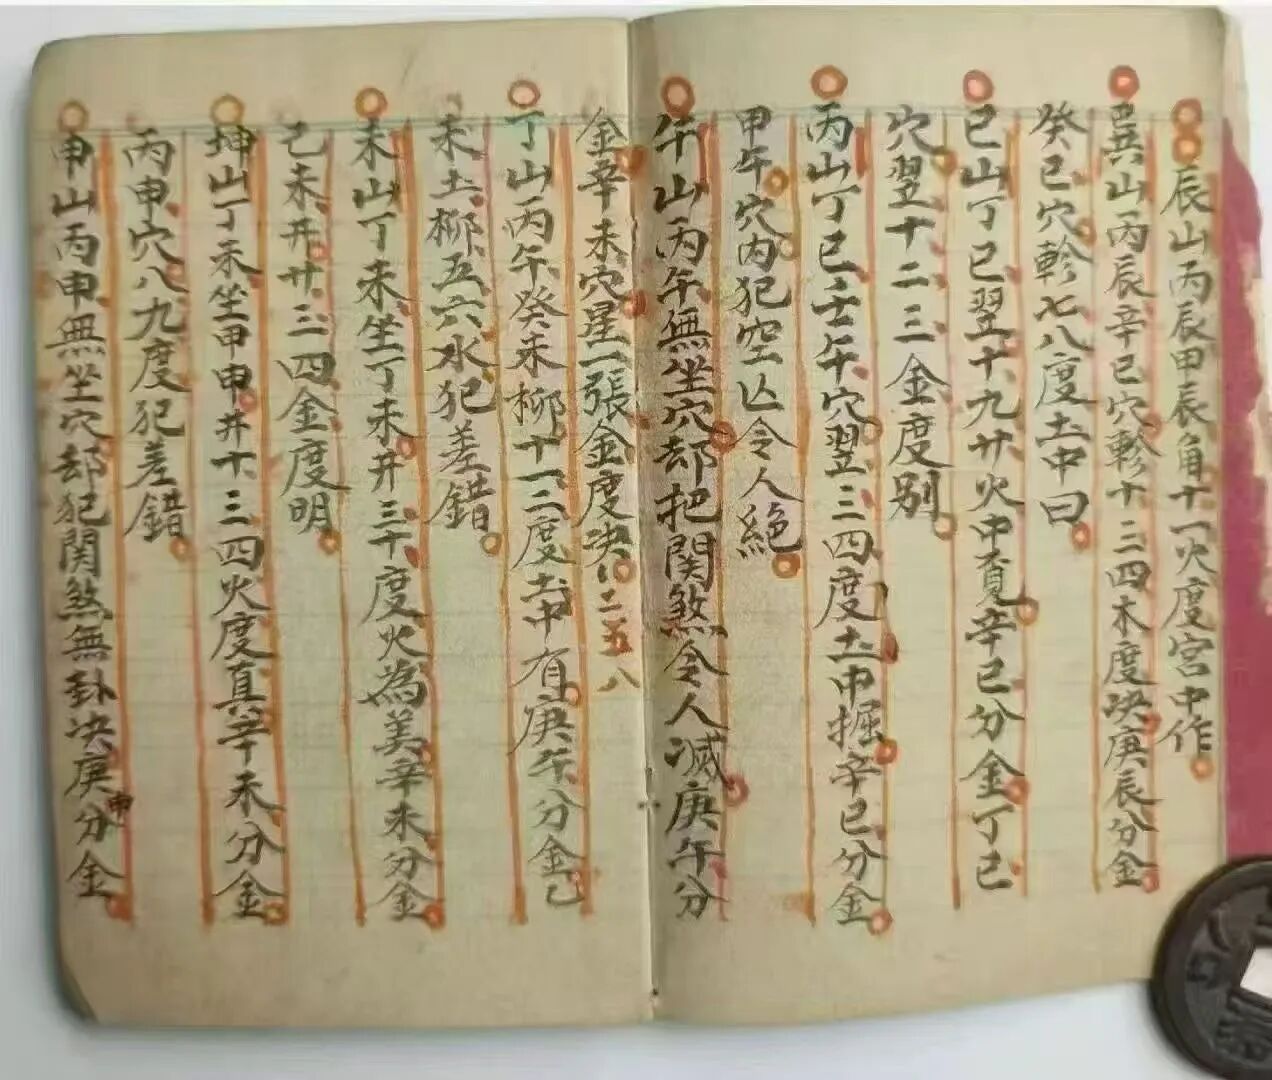 辰山丙辰甲辰角十一火度宮中作
巽山丙辰辛巳穴軫十三四木度决庚辰分金
癸巳穴軫七八度土中曰
巳山丁巳翌十九廿火中覔辛巳分金丁巳
穴翌十二三金度别
丙山丁巳壬午穴翌三四度土中掘辛巳分金
甲午穴内犯空亡令人絕
午山丙午無坐穴却把関煞令人滅庚午分
金辛未穴星一張金度决
二五八
丁山丙午癸未柳十一二度土中有庚午分金己
未土柳五六水犯差錯
未山丁未坐丁未井三十度火為美辛未分金
己未井廿三四金度明
坤山丁未坐甲申井十三四火度真辛未分金
丙申穴八九度犯差錯
申山丙申無坐穴却犯関煞無卦决庚申分金